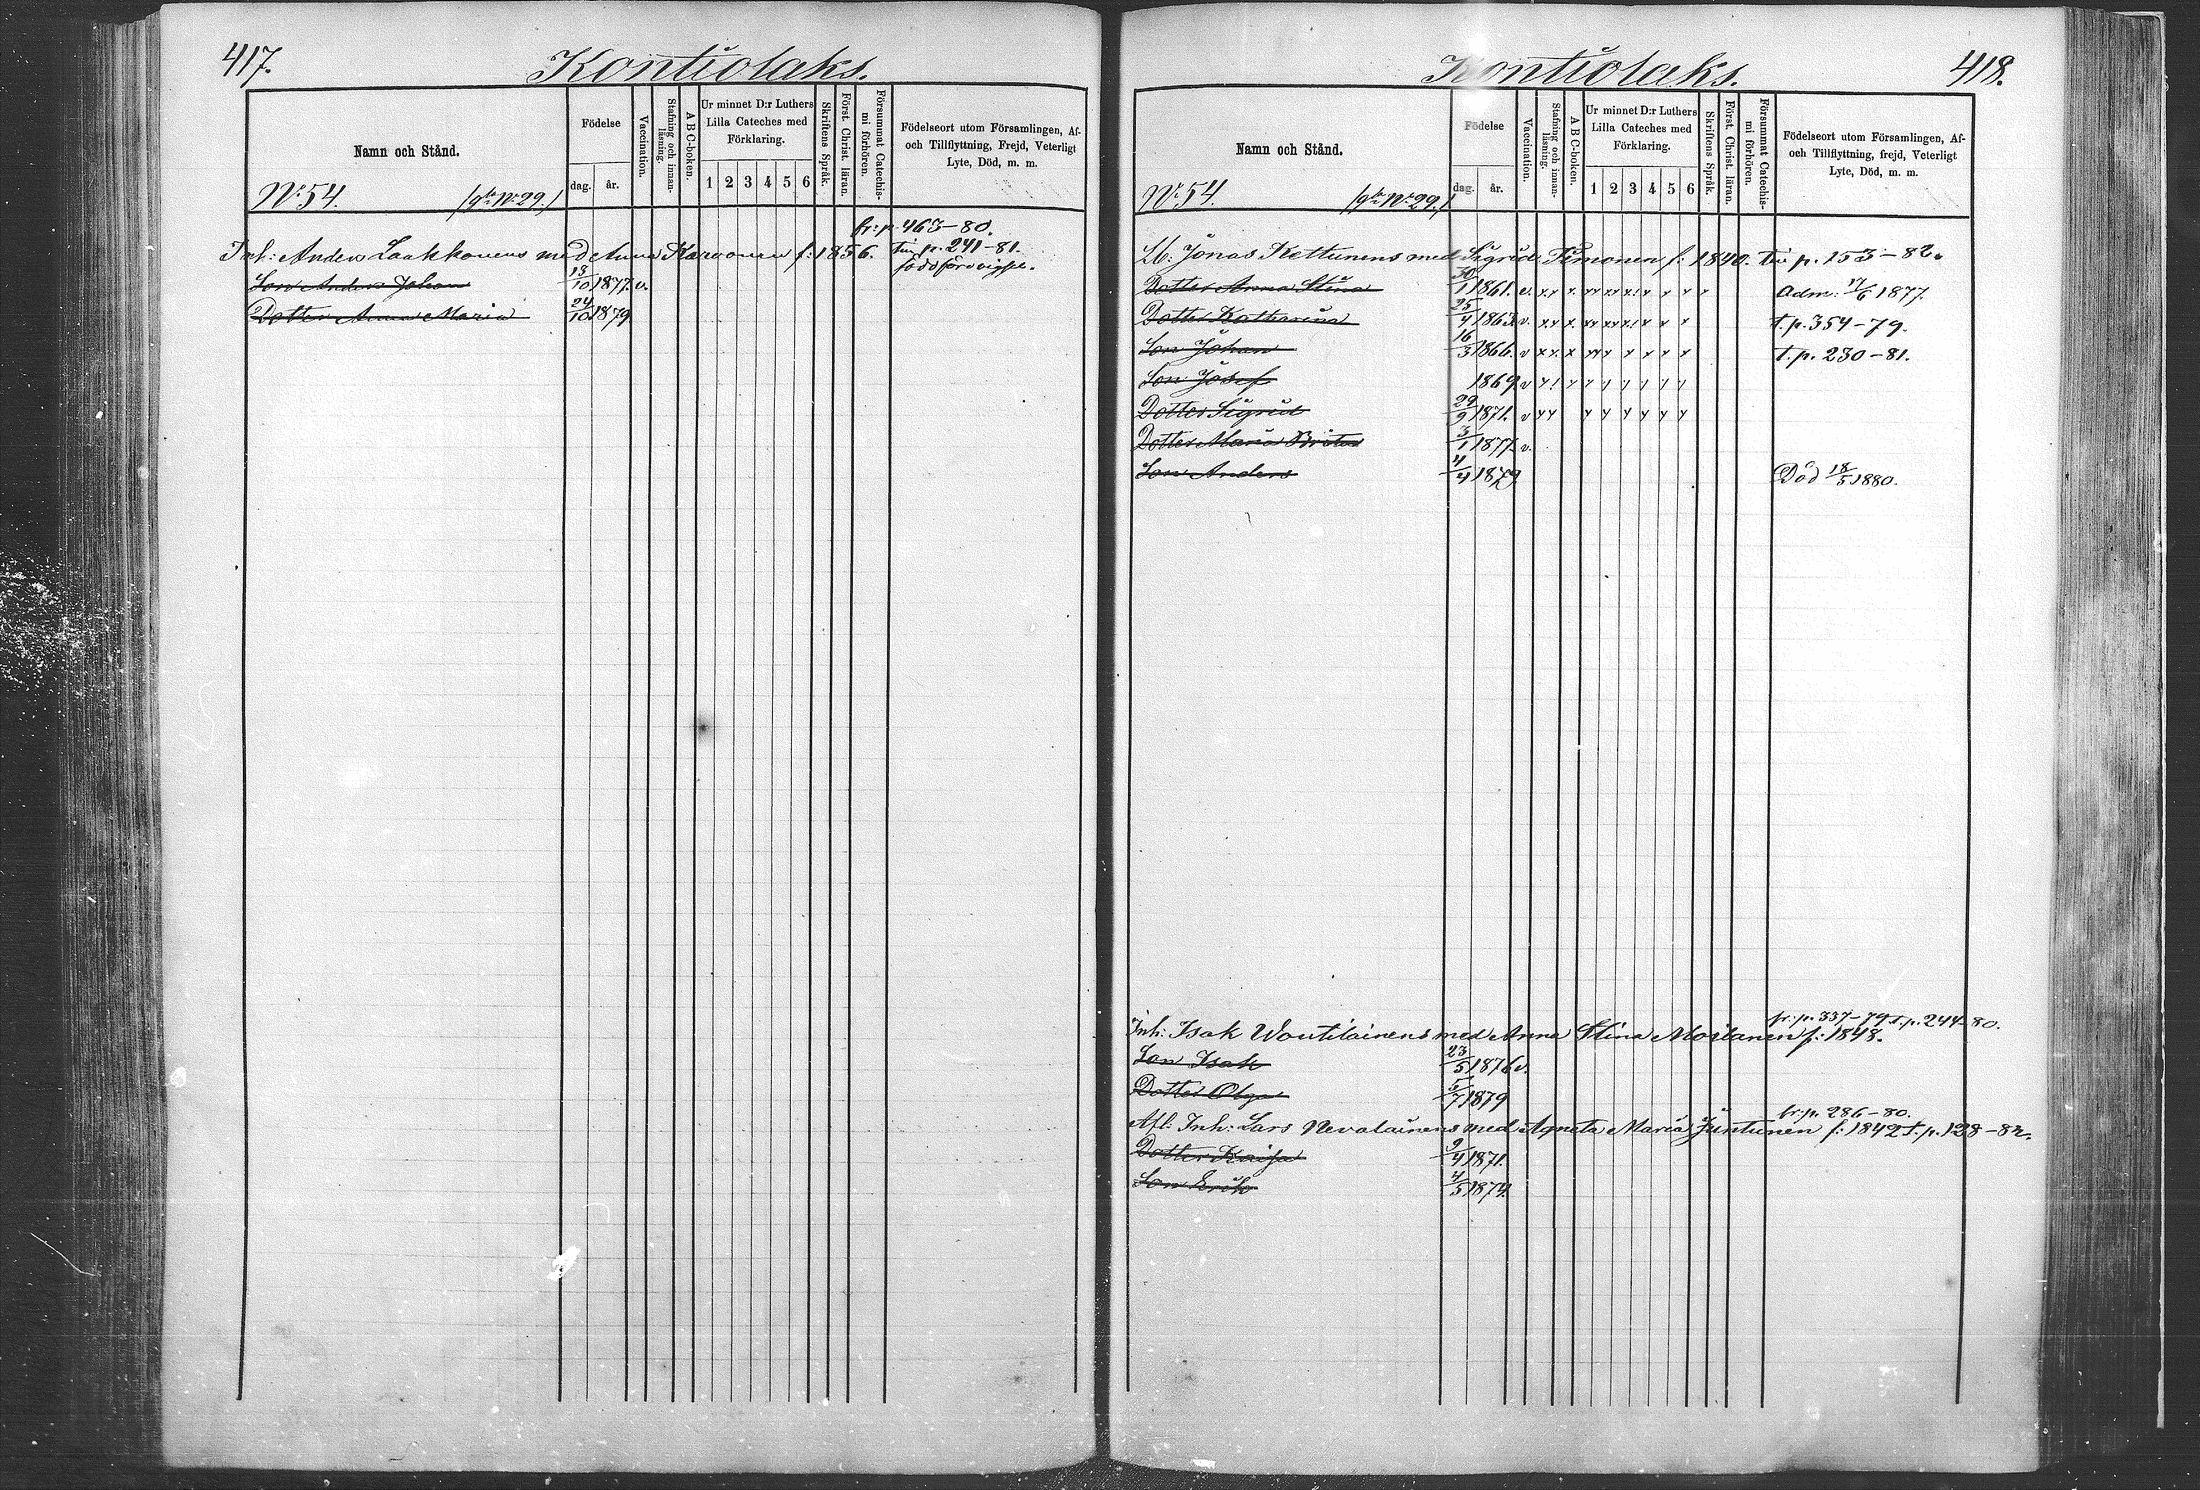 417.
Kontiolaks.
Namn och Stånd.
Födelse
dag. år.
Vaccination.
Stafning och innanläsning.
A B C-boken.
Ur minnet D:r Luthers
Lilla Cateches med
Förklaring.
1 2 3 4 5 6
Skriftens Språk.
Först. Christ. läran.
Försummat Catechismi förhören.
Födelseort utom Församlingen, Af-
och Tillflyttning, Frejd, Veterligt
Lyte, Död, m. m.
N:o 54. (g:la N:o 29.)
fr: p. 463-80.
Inh: Anders Laakkonens med Anna Karvonen f: 1856. tin p. 241-81.
Son Anders Johan 13/10 1877. v. född före vigsel.
Dotter Anna Maria 24/10 1879
418.
Kontiolaks.
Namn och Stånd.
Födelse
dag. år.
Vaccination.
Stafning och innanläsning.
A B C-boken.
Ur minnet D:r Luthers
Lilla Cateches med
Förklaring.
1 2 3 4 5 6
Skriftens Språk.
Först. Christ. läran.
Försummat Catechismi förhören.
Födelseort utom Församlingen, Af-
och Tillflyttning, frejd, Veterligt
Lyte, Död, m. m.
N:o 54. (g:la N:o 29.)
Lb: Jonas Kettunens med Sigrid Pimonen f: 1840. tin p. 153-82.
Dotter Anna Stina 30/1 1861. v. Adm: 17/6 1877.
Dotter Katharina 25/4 1863. v. t. p. 354-79.
Son Johan 16/3 1866. v t. p. 230-81.
Son Josef 1869 v
Dotter Sigrid 29/9 1871. v
Dotter Maria Brita 3/1 1877. v.
Son Anders 4/4 1879 Död 18/5 1880.
fr: p. 337-79 t. p. 244-80.
Inh: Isak Woutilainens med Anna Stina Moilanen f: 1848.
Son Isak 23/5 1876 v.
Dotter Olga 5/7 1879
fr: p. 286-80.
Afl: Inh: Lars Nevalainens med Agneta Maria Juntunen f: 1842 t. p. 128-82.
Dotter Kaisa 9/4 1871.
Son Erik 4/5 1874